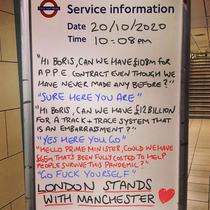 UNDERGROUND
Service information
Date 20/10/2020
Time 10:08pm
"HI BORIS, CAN WE HAVE £108M FOR
A P.P.E CONTRACT EVEN THOUGH WE
HAVE NEVER MADE ANY BEFORE?"
"SURE HERE YOU ARE"
"HI BORIS, CAN WE HAVE £12 BILLION
FOR A TRACK + TRACE SYSTEM THAT
IS AN EMBARRASSMENT?"
"YES HERE YOU GO"
"HELLO PRIME MINISTER, COULD WE HAVE
£65M THAT'S BEEN FULLY COSTED TO HELP
PEOPLE SURVIVE THIS PANDEMIC?"
"GO FUCK YOURSELF"
LONDON STANDS
WITH MANCHESTER